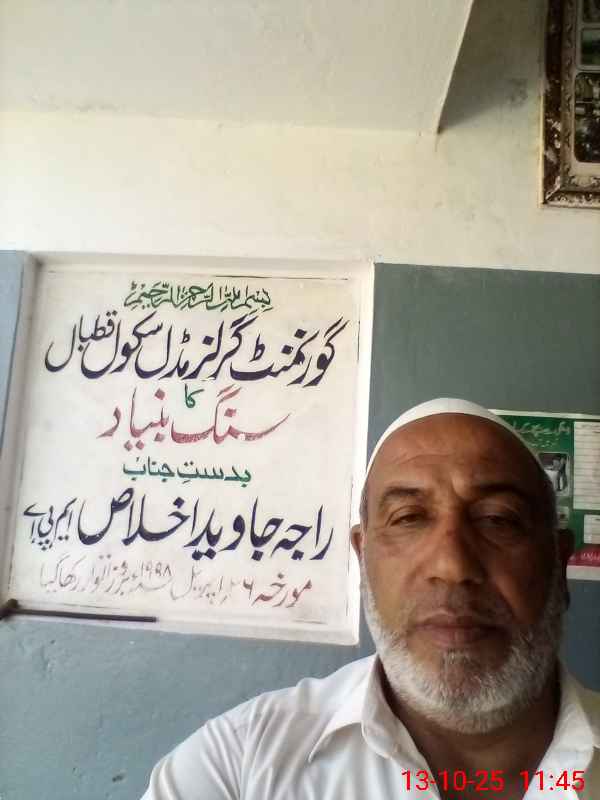 بسم اللہ الرحمن الرحیم
گورنمنٹ گرلز مڈل سکول قطبال
کا
سنگ بنیاد
بدستِ جناب
راجہ جاوید اخلاص ایم پی اے
مورخہ ۲۶ اپریل ۱۹۹۸ء بروز اتوار رکھا گیا
13-10-25 11:45